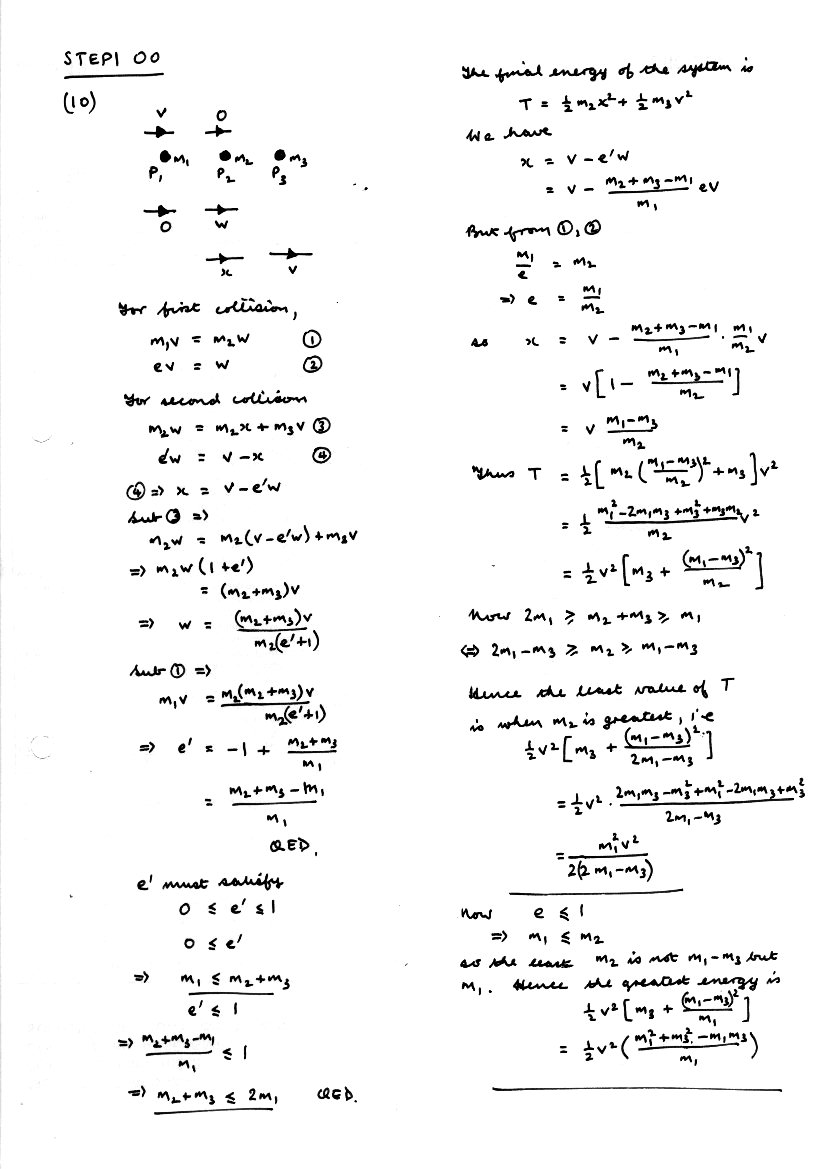 STEP I 00
(10)
V 0
m₁ m₂ m₃
P₁ P₂ P₃
0 W
x v
For first collision,
m₁v = m₂w ①
ev = w ②
For second collision
m₂w = m₂x + m₃v ③
e'w = v-x ④
④ => x = v-e'w
Sub ③ =>
m₂w = m₂(v-e'w)+m₃v
=> m₂w(1+e')
= (m₂+m₃)v
=> w = (m₂+m₃)v / m₂(e'+1)
Sub ① =>
m₁v = m₂(m₂+m₃)v / m₂(e'+1)
=> e' = -1 + (m₂+m₃)/m₁
= (m₂+m₃-m₁)/m₁
QED.
e' must satisfy
0 ≤ e' ≤ 1
0 ≤ e'
=> m₁ ≤ m₂+m₃
e' ≤ 1
=> (m₂+m₃-m₁)/m₁ ≤ 1
=> m₂+m₃ ≤ 2m₁ QED.
The final energy of the system is
T = ½m₂x²+½m₃v²
We have
x = v-e'w
= v - (m₂+m₃-m₁)/m₁ ev
But from ①,②
m₁/e = m₂
=> e = m₁/m₂
so x = v - (m₂+m₃-m₁)/m₁ · m₁/m₂ v
= v[1 - (m₂+m₃-m₁)/m₂]
= v (m₁-m₃)/m₂
Thus T = ½[m₂((m₁-m₃)/m₂)²+m₃]v²
= ½ (m₁²-2m₁m₃+m₃²+m₃m₂)/m₂ v²
= ½v²[m₃ + (m₁-m₃)²/m₂]
Now 2m₁ ≥ m₂+m₃ ≥ m₁
⇔ 2m₁-m₃ ≥ m₂ ≥ m₁-m₃
Hence the least value of T
is when m₂ is greatest, i.e
½v²[m₃ + (m₁-m₃)²/(2m₁-m₃)]
= ½v² · (2m₁m₃-m₃²+m₁²-2m₁m₃+m₃²)/(2m₁-m₃)
= m₁²v²/2(2m₁-m₃)
Now e ≤ 1
=> m₁ ≤ m₂
so the least m₂ is not m₁-m₃ but
m₁. Hence the greatest energy is
½v²[m₃ + (m₁-m₃)²/m₁]
= ½v²((m₁²+m₃²-m₁m₃)/m₁)